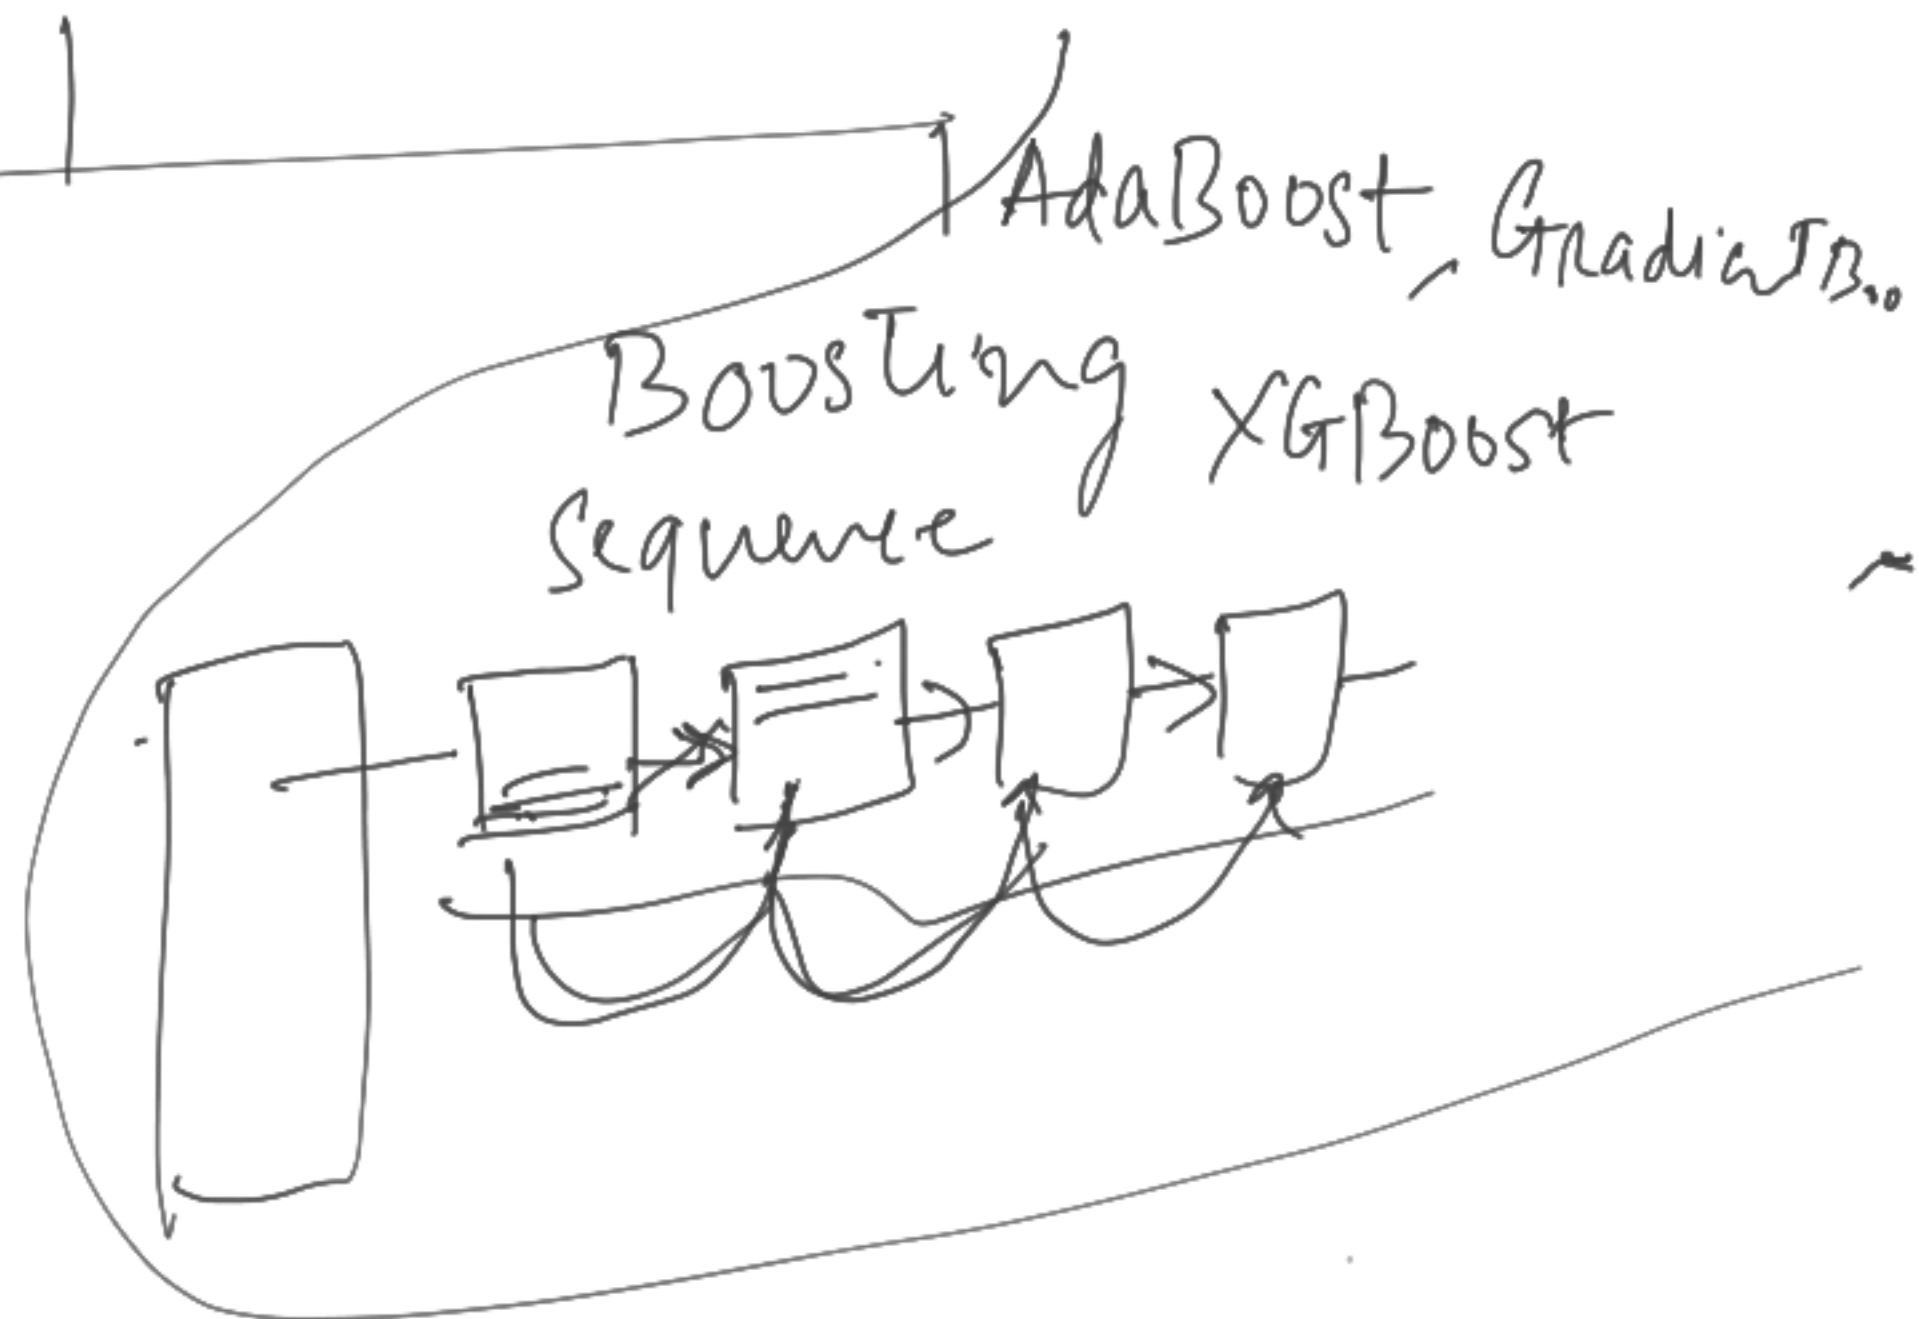 AdaBoost, GradientB..
Boosting
XGBoost
Sequence